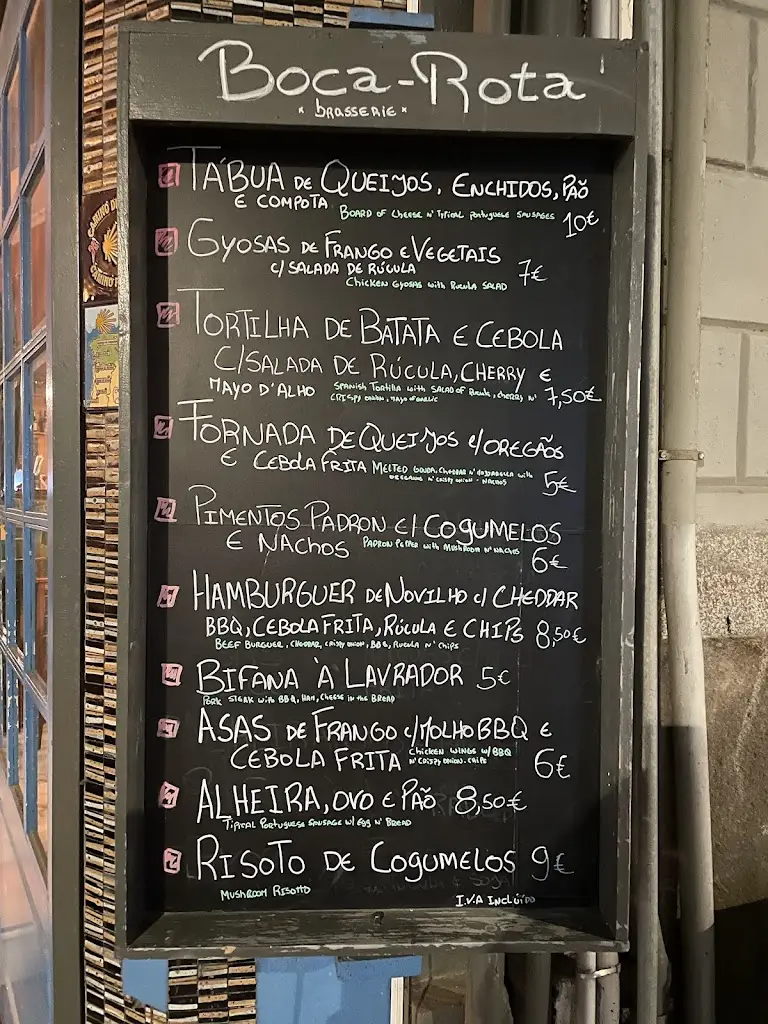 Boca-Rota
* brasserie *
TÁBUA DE QUEIJOS, ENCHIDOS, PÃO
E COMPOTA BOARD OF CHEESE N' TIPICAL PORTUGUESE SAUSAGES 10€
GYOSAS DE FRANGO E VEGETAIS
C/ SALADA DE RÚCULA 7€
CHICKEN GYOSAS WITH RUCULA SALAD
TORTILHA DE BATATA E CEBOLA
C/SALADA DE RÚCULA, CHERRY E
MAYO D'ALHO SPANISH TORTILLA WITH SALAD OF RUCULA, CHERRY N' 7,50€
CRISPY ONION, MAYO OF GARLIC
FORNADA DE QUEIJOS C/OREGÃOS
E CEBOLA FRITA MELTED GOUDA, CHEDDAR N' MOZZARELLA WITH
OREGANOS N' CRISPY ONION - NACHOS 5€
PIMENTOS PADRON C/ COGUMELOS
E NACHOS PADRON PEPPER WITH MUSHROOM N' NACHOS 6€
HAMBURGUER DE NOVILHO C/ CHEDDAR
BBQ, CEBOLA FRITA, RÚCULA E CHIPS 8,50€
BEEF BURGUER, CHEDDAR, CRISPY ONION, BBQ, RUCULA N' CHIPS
BIFANA À LAVRADOR 5€
PORK STEAK WITH BBQ, HAM, CHEESE IN THE BREAD
ASAS DE FRANGO C/MOLHO BBQ E
CEBOLA FRITA CHICKEN WINGS W/ BBQ
N' CRISPY ONION. CHIPS 6€
ALHEIRA, OVO E PÃO 8,50€
TIPICAL PORTUGUESE SAUSAGE W/ EGG N' BREAD
RISOTO DE COGUMELOS 9€
MUSHROOM RISOTTO
I.V.A INCLÚIDO